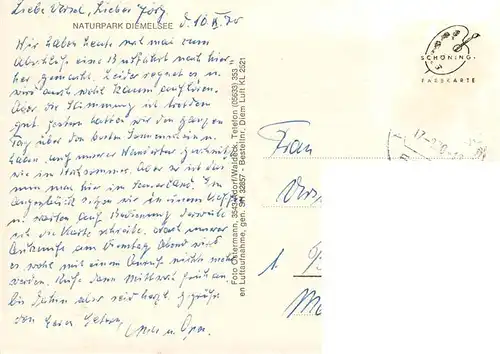 Liebe Ursel, Lieber Jörg,
NATURPARK DIEMELSEE
d. 10. 70
Wir haben heute mal zum
Abschluß eine Busfahrt nach hier-
her gemacht. Leider regnet es u.
wird auch wohl kaum aufhören.
Aber die Stimmung ist trotzdem
gut. Gestern hatten wir den ganzen
Tag über den besten Sonnenschein u.
haben auf unserer Wandertour geschwitzt
wie im Hochsommer. Aber so ist das
nun mal hier im Sauerland. Im
Augenblick sitzen wir in einem Kaffee
u. warten auf Bedienung derweile
ich die Karte schreibe. Nach unserer
Ankunft am Dienstag Abend wird
es wohl mit einem Anruf nichts mehr
werden. Rufe dann Mittwoch früh an
bis dahin aber seid herzl. gegrüßt
von Euren Eltern,
Oma u. Opa.
Foto Ostermann, 3543 Adorf/Waldeck, Telefon (05633) 353
en Luftaufnahme, gen. SH 32857 - Bestellnr. Diem Luft KL 2521
SCHÖNING
FARBKARTE
Frau
1